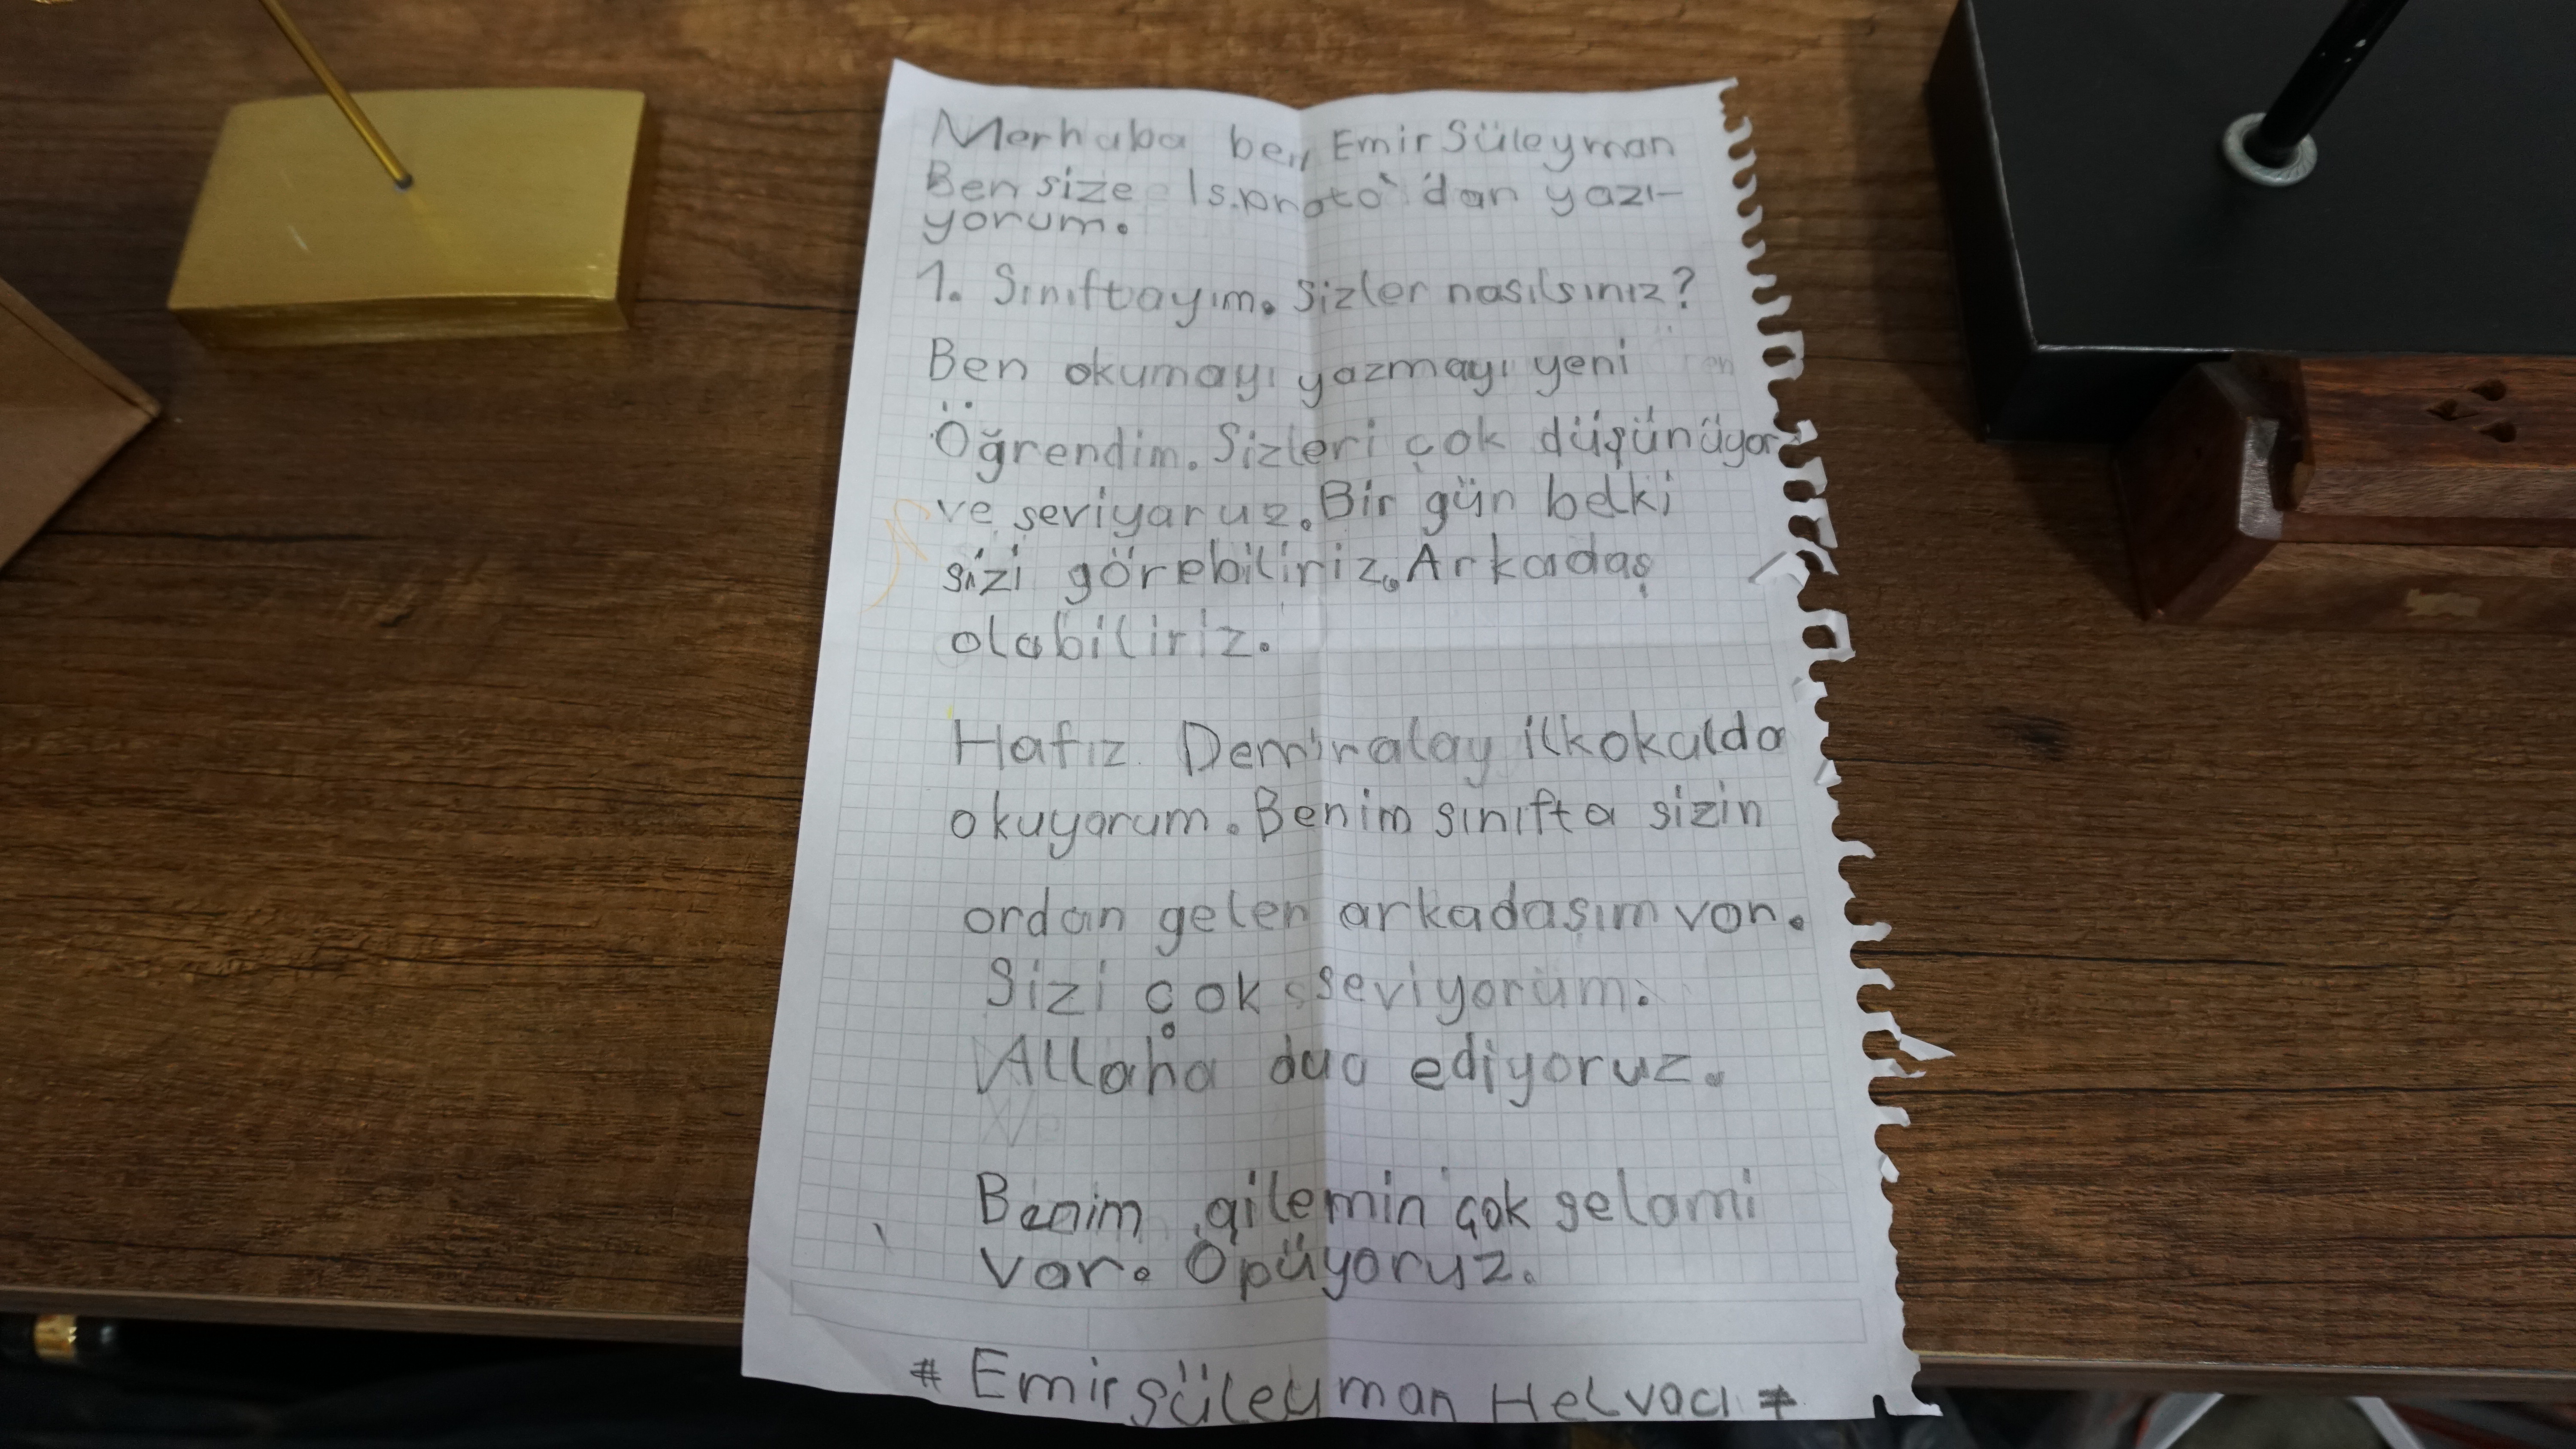 Merhaba ben Emir Süleyman
Ben size Isparta'dan yazı-
yorum.
1. Sınıftayım. Sizler nasılsınız?
Ben okumayı yazmayı yeni
Öğrendim. Sizleri çok düşünüyor
ve seviyoruz. Bir gün belki
sizi görebiliriz. Arkadaş
olabiliriz.
Hafız Demiralay ilkokulda
okuyorum. Benim sınıfta sizin
ordan gelen arkadaşım var.
Sizi çok seviyorum.
Allaha dua ediyoruz.
Benim ailemin çok selami
var. Öpüyoruz.
# Emir Süleyman Helvacı #